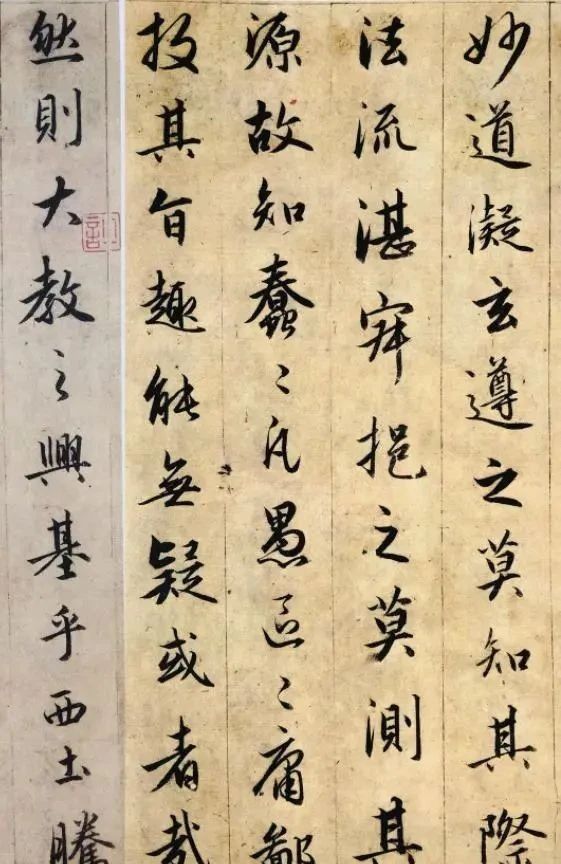 妙道凝玄遵之莫知其際
法流湛寂挹之莫測其
源故知蠢〻凡愚區〻庸鄙
投其旨趣能無疑或者哉
然則大教之興基乎西土騰